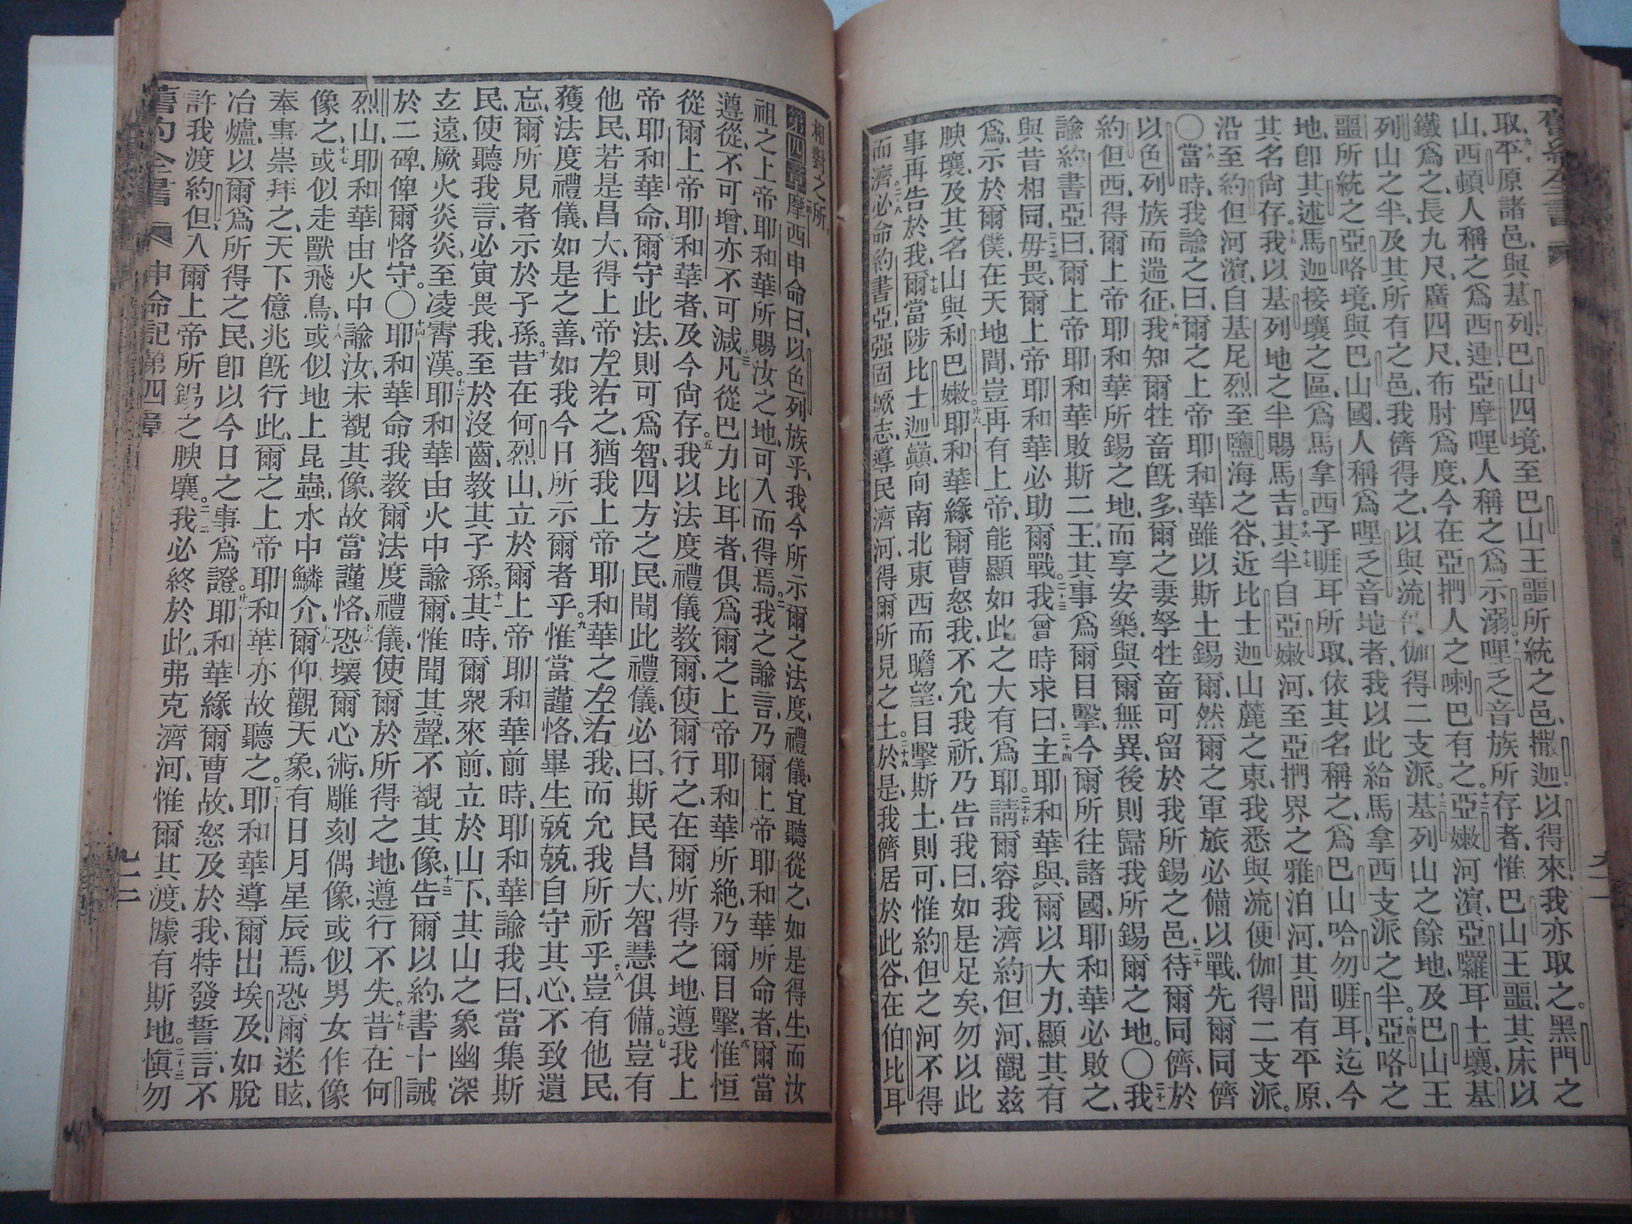 舊約全書
取平原諸邑與基列巴山四境至巴山王噩所統之邑撒迦以得來我亦取之黑門之
山西頓人稱之爲西連亞摩哩人稱之爲示溺哩乏音族所存者惟巴山王噩其床以
鐵爲之長九尺廣四尺布肘爲度今在亞捫人之喇巴有之亞嫩河濱亞囉耳土壤基
列山之半及其所有之邑我儕得之以與流便伽得二支派基列山之餘地及巴山王
噩所統之亞咯境與巴山國人稱爲哩乏音地者我以此給馬拿西支派之半亞咯之
地卽其述馬迦接壤之區爲馬拿西子睚耳所取依其名稱之爲巴山哈勿睚耳迄今
其名尙存我以基列地之半賜馬吉其半自亞嫩河至亞捫界之雅泊河其間有平原
沿至約但河濱自基尼烈至鹽海之谷近比士迦山麓之東我悉與流便伽得二支派
〇當時我諭之曰爾之上帝耶和華雖以斯土錫爾然爾之軍旅必備以戰先爾同儕
以色列族而遄征我知爾牲畜旣多爾之妻孥牲畜可留於我所錫之邑待爾同儕於
約但西得爾上帝耶和華所錫之地而享安樂與爾無異後則歸我所錫爾之地〇我
諭約書亞曰爾上帝耶和華敗斯二王其事爲爾目擊今爾所往諸國耶和華必敗之
與昔相同毋畏爾上帝耶和華必助爾戰我曾時求曰主耶和華與爾以大力顯其有
爲示於爾僕在天地間豈再有上帝能顯如此之大有爲耶請爾容我濟約但河觀茲
腴壤及其名山與利巴嫩耶和華緣爾曹怒我不允我祈乃告我曰如是足矣勿以此
事再告於我爾當陟比士迦巔向南北東西而瞻望目擊斯土則可惟約但之河不得
而濟必命約書亞强固厥志導民濟河得爾所見之土於是我儕居於此谷在伯比耳
相對之所
第四章摩西申命曰以色列族乎我今所示爾之法度禮儀宜聽從之如是得生而汝
祖之上帝耶和華所賜汝之地可入而得焉我之諭言乃爾上帝耶和華所命者爾當
遵從不可增亦不可減凡從巴力比耳者俱爲爾之上帝耶和華所絶乃爾目擊惟恒
從爾上帝耶和華者及今尙存我以法度禮儀教爾使爾行之在爾所得之地遵我上
帝耶和華命爾守此法則可爲智四方之民聞此禮儀必曰斯民昌大智慧俱備豈有
他民若是昌大得上帝左右之猶我上帝耶和華之左右我而允我所祈乎豈有他民
獲法度禮儀如是之善如我今日所示爾者乎惟當謹恪畢生兢兢自守其心不致遺
忘爾所見者示於子孫昔在何烈山立於爾上帝耶和華前時耶和華諭我曰當集斯
民使聽我言必寅畏我至於沒齒教其子孫其時爾衆來前立於山下其山之象幽深
玄遠厥火炎炎至凌霄漢耶和華由火中諭爾惟聞其聲不覩其像告爾以約書十誡
於二碑俾爾恪守〇耶和華命我教爾法度禮儀使爾於所得之地遵行不失昔在何
烈山耶和華由火中諭汝未覩其像故當謹恪恐壞爾心術雕刻偶像或似男女作像
像之或似走獸飛鳥或似地上昆蟲水中鱗介爾仰觀天象有日月星辰焉恐爾迷眩
奉事崇拜之天下億兆旣行此爾之上帝耶和華亦故聽之耶和華導爾出埃及如脫
冶爐以爾爲所得之民卽以今日之事爲證耶和華緣爾曹故怒及於我特發誓言不
許我渡約但入爾上帝所錫之腴壤我必終於此弗克濟河惟爾其渡據有斯地愼勿
舊約全書 申命記第四章 九十二